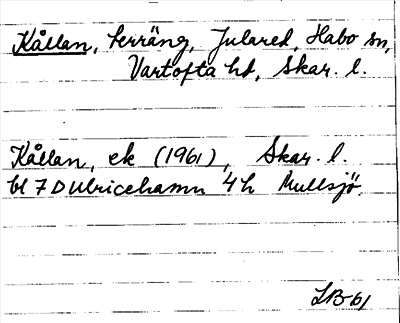 Kållan, terräng, Julared, Habo sn,
Vartofta hd, Skar. l.
Kållan, ek (1961), Skar. l.
bl 7D Ulricehamn 4h Mullsjö.
LB-61